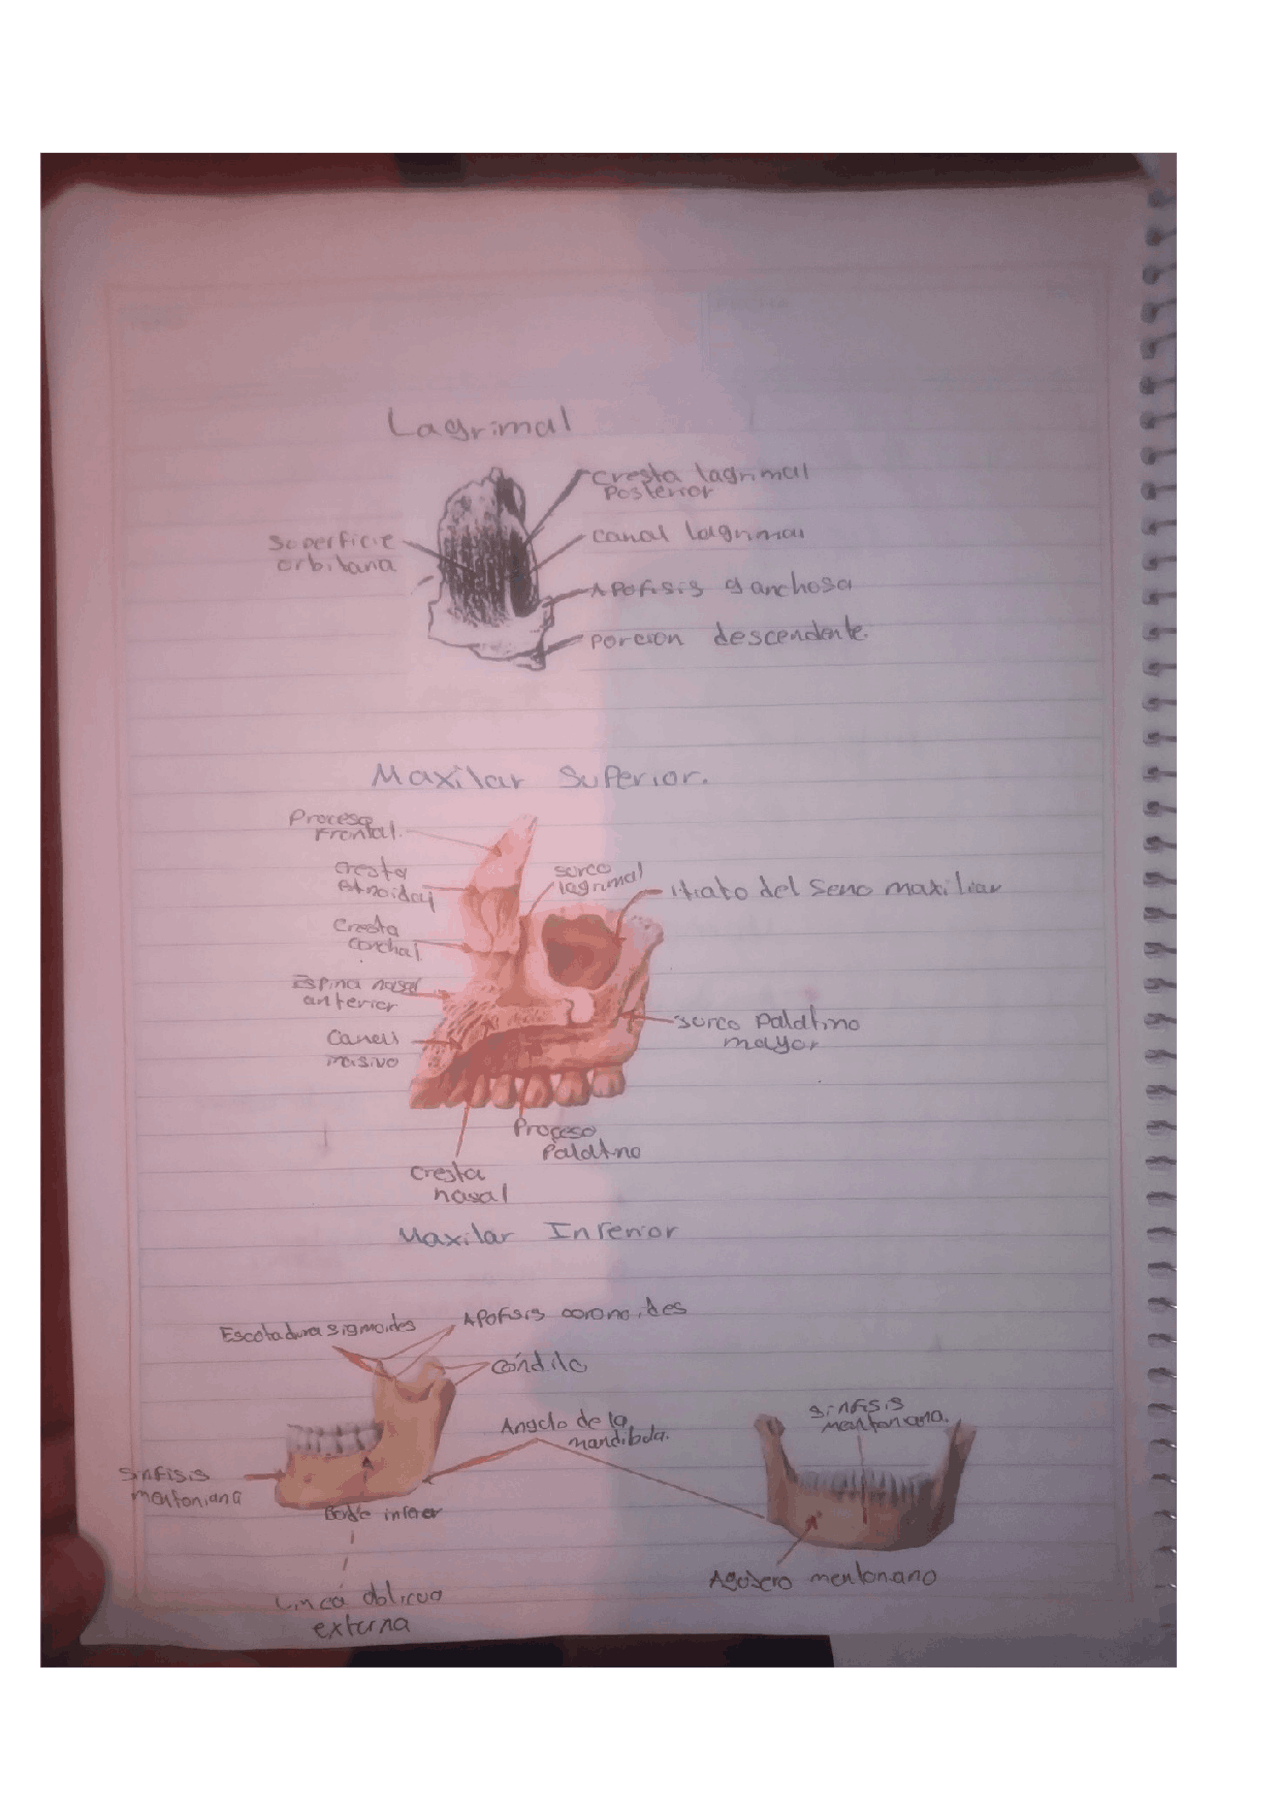 Lagrimal
Cresta lagrimal
Posterior
canal lagrimal
Superficie
orbitaria
Apofisis ganchosa
Porcion descendente.
Maxilar Superior.
Proceso
Frontal.
cresta
etnoidal
surco
lagrimal
Hiato del Seno maxiliar
Cresta
conchal
Espina nasal
anterior
surco Palatino
mayor
Proceso
Palatino
Cresta
nasal
Maxilar Inferior
Escotadura sigmoides
Apofisis coronoides
Cóndilo
Angulo de la
mandibula.
Sinfisis
mentoniana.
Sinfisis
mentoniana
Borde inferior
Agujero mentoniano
Linea oblicua
externa